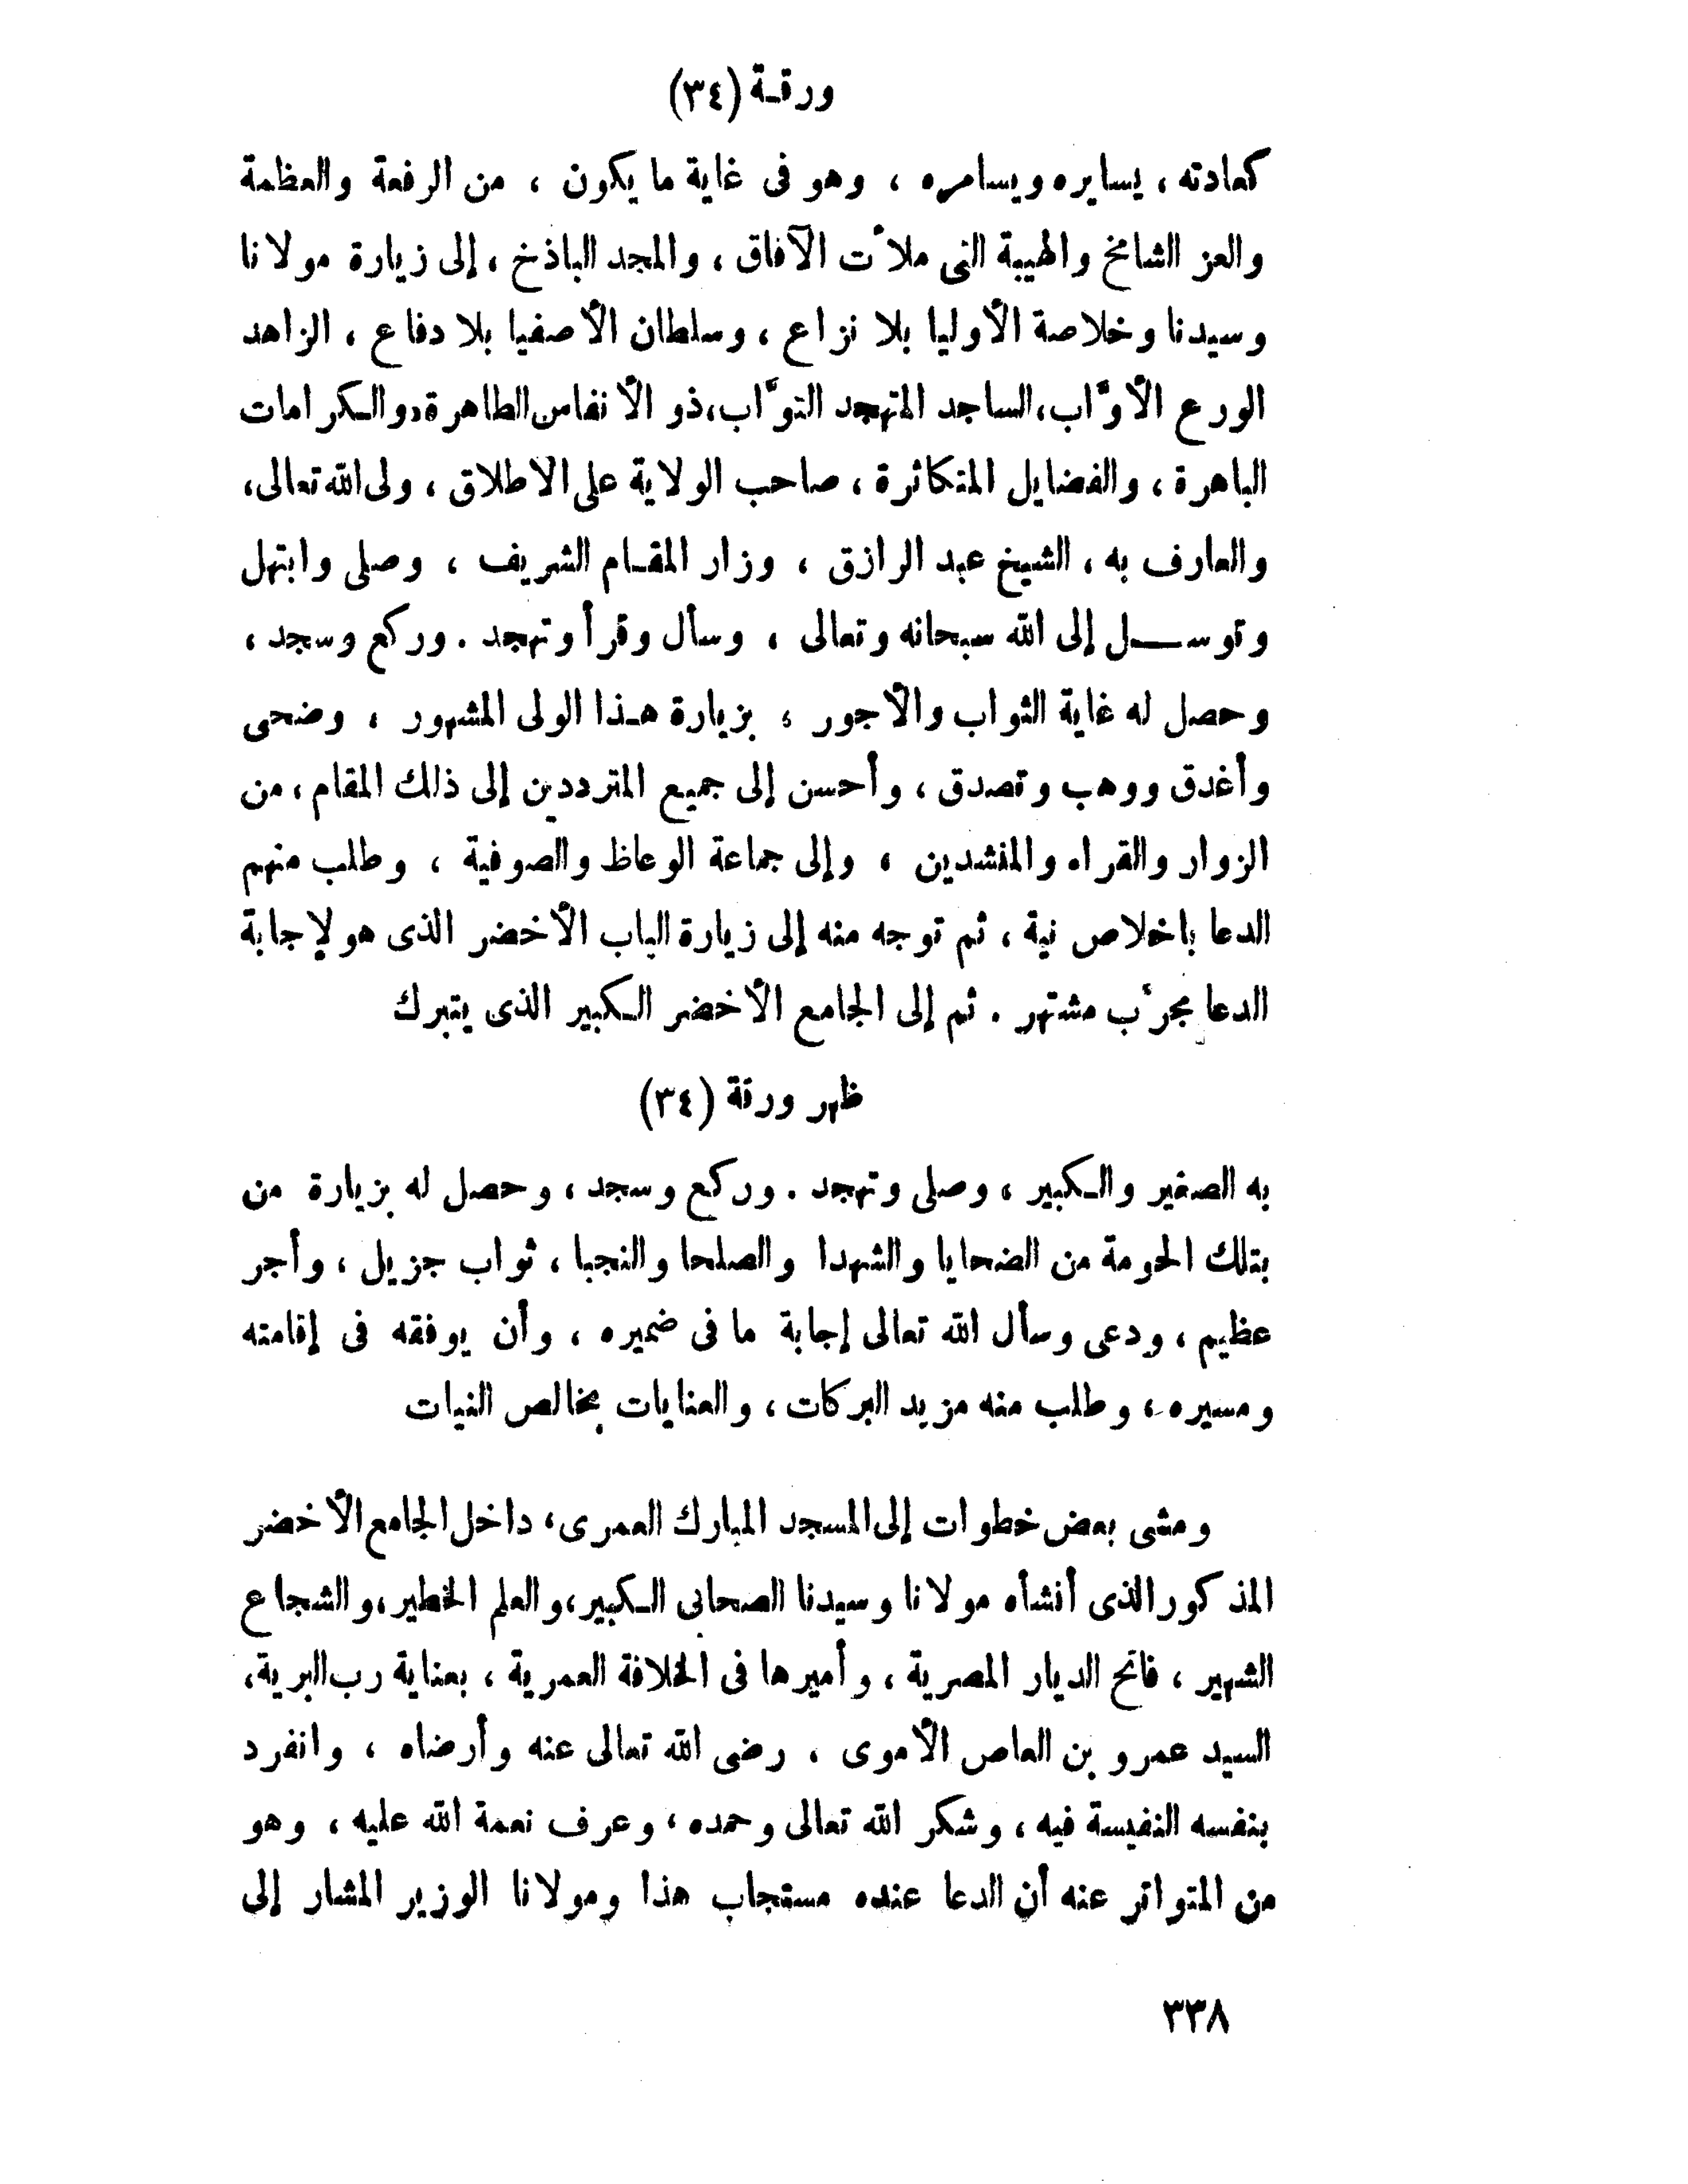 ورقة (٣٤)
كعادته ، يسايره ويسامره ، وهو فى غاية ما يكون ، من الرفعة والعظمة
والعز الشامخ والهيبة التى ملأت الآفاق ، والمجد الباذخ ، إلى زيارة مولانا
وسيدنا وخلاصة الأوليا بلا نزاع ، وسلطان الأصفيا بلا دفاع ، الزاهد
الورع الأوَّاب ، الساجد المتهجد التوَّاب ، ذو الأنفاس الطاهرة ، والكرامات
الباهرة ، والفضايل المتكاثرة ، صاحب الولاية على الاطلاق ، ولى الله تعالى ،
والعارف به ، الشيخ عبد الرازق ، وزار المقام الشريف ، وصلى وابتهل
وتوســل إلى الله سبحانه وتعالى ، وسأل وقرأ وتهجد . وركع وسجد ،
وحصل له غاية الثواب والأجور ، بزيارة هذا الولى المشهور ، وضحى
وأغدق ووهب وتصدق ، وأحسن إلى جميع المترددين إلى ذلك المقام ، من
الزوار والقراه والمنشدين ، وإلى جماعة الوعاظ والصوفية ، وطلب منهم
الدعا باخلاص نية ، ثم توجه منه إلى زيارة الباب الأخضر الذى هو لإجابة
الدعا مجرّب مشتهر . ثم إلى الجامع الأخضر الكبير الذى يتبرك
ظهر ورقة (٣٤)
به الصغير والكبير ، وصلى وتهجد . وركع وسجد ، وحصل له بزيارة من
بتلك الحومة من الضحايا والشهدا والصلحا والنجبا ، ثواب جزيل ، وأجر
عظيم ، ودعى وسأل الله تعالى إجابة ما فى ضميره ، وأن يوفقه فى إقامته
ومسيره ، وطلب منه مزيد البركات ، والعنايات بخالص النيات
ومشى بعض خطوات إلى المسجد المبارك العمرى ، داخل الجامع الأخضر
المذكور الذى أنشأه مولانا وسيدنا الصحابى الكبير ، والعلم الخطير ، والشجاع
الشهير ، فاتح الديار المصرية ، وأميرها فى الخلافة العمرية ، بعناية رب البرية ،
السيد عمرو بن العاص الأموى ، رضى الله تعالى عنه وأرضاه ، وانفرد
بنفسه النفيسة فيه ، وشكر الله تعالى وحمده ، وعرف نعمة الله عليه ، وهو
من المتواتر عنه أن الدعا عنده مستجاب هذا ومولانا الوزير المشار إلى
٣٣٨